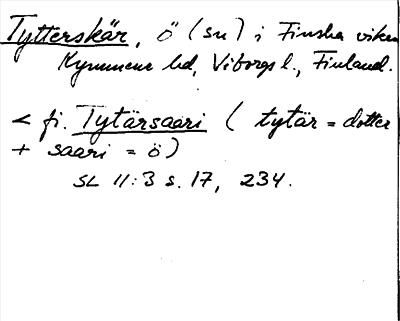 Tytterskär, ö (sn) i Finska viken
Kymmene hd, Viborgs l., Finland.
< fi. Tytärsaari (tytär = dotter
+ saari = ö)
SL 11:3 s. 17, 234.